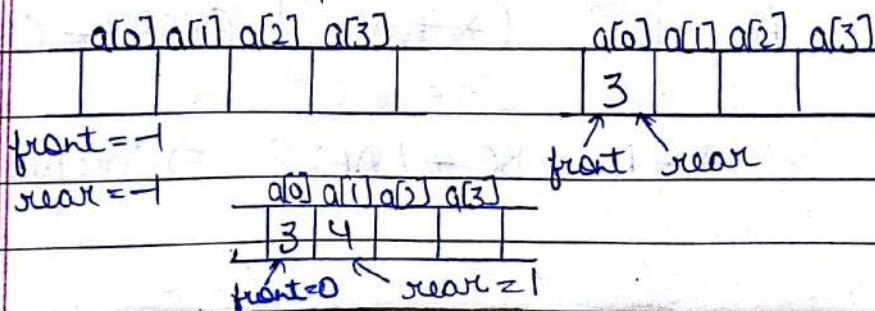 a[0] a[1] a[2] a[3]
front = -1
rear = -1
a[0] a[1] a[2] a[3]
3
front rear
a[0] a[1] a[2] a[3]
3 4
front=0 rear = 1